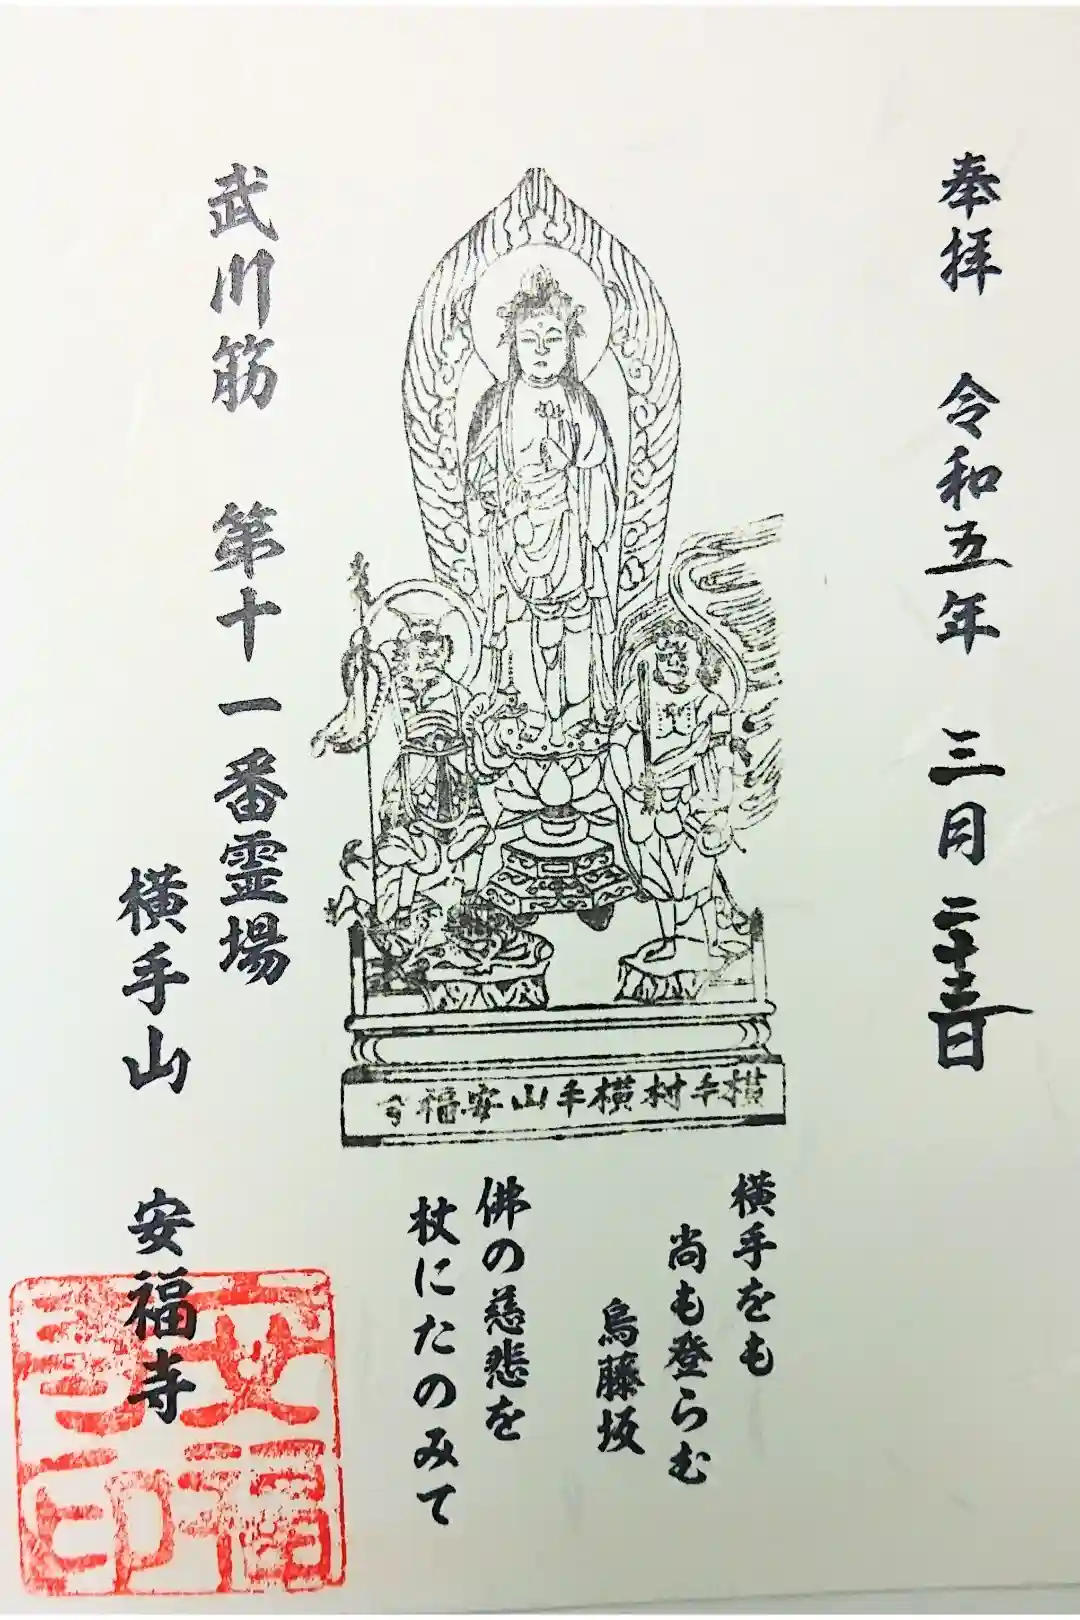 奉拝 令和五年 三月 二十三日
横手村横手山安福寺
横手をも
尚も登らむ
烏藤坂
佛の慈悲を
杖にたのみて
武川筋 第十一番霊場
横手山 安福寺
安福寺印